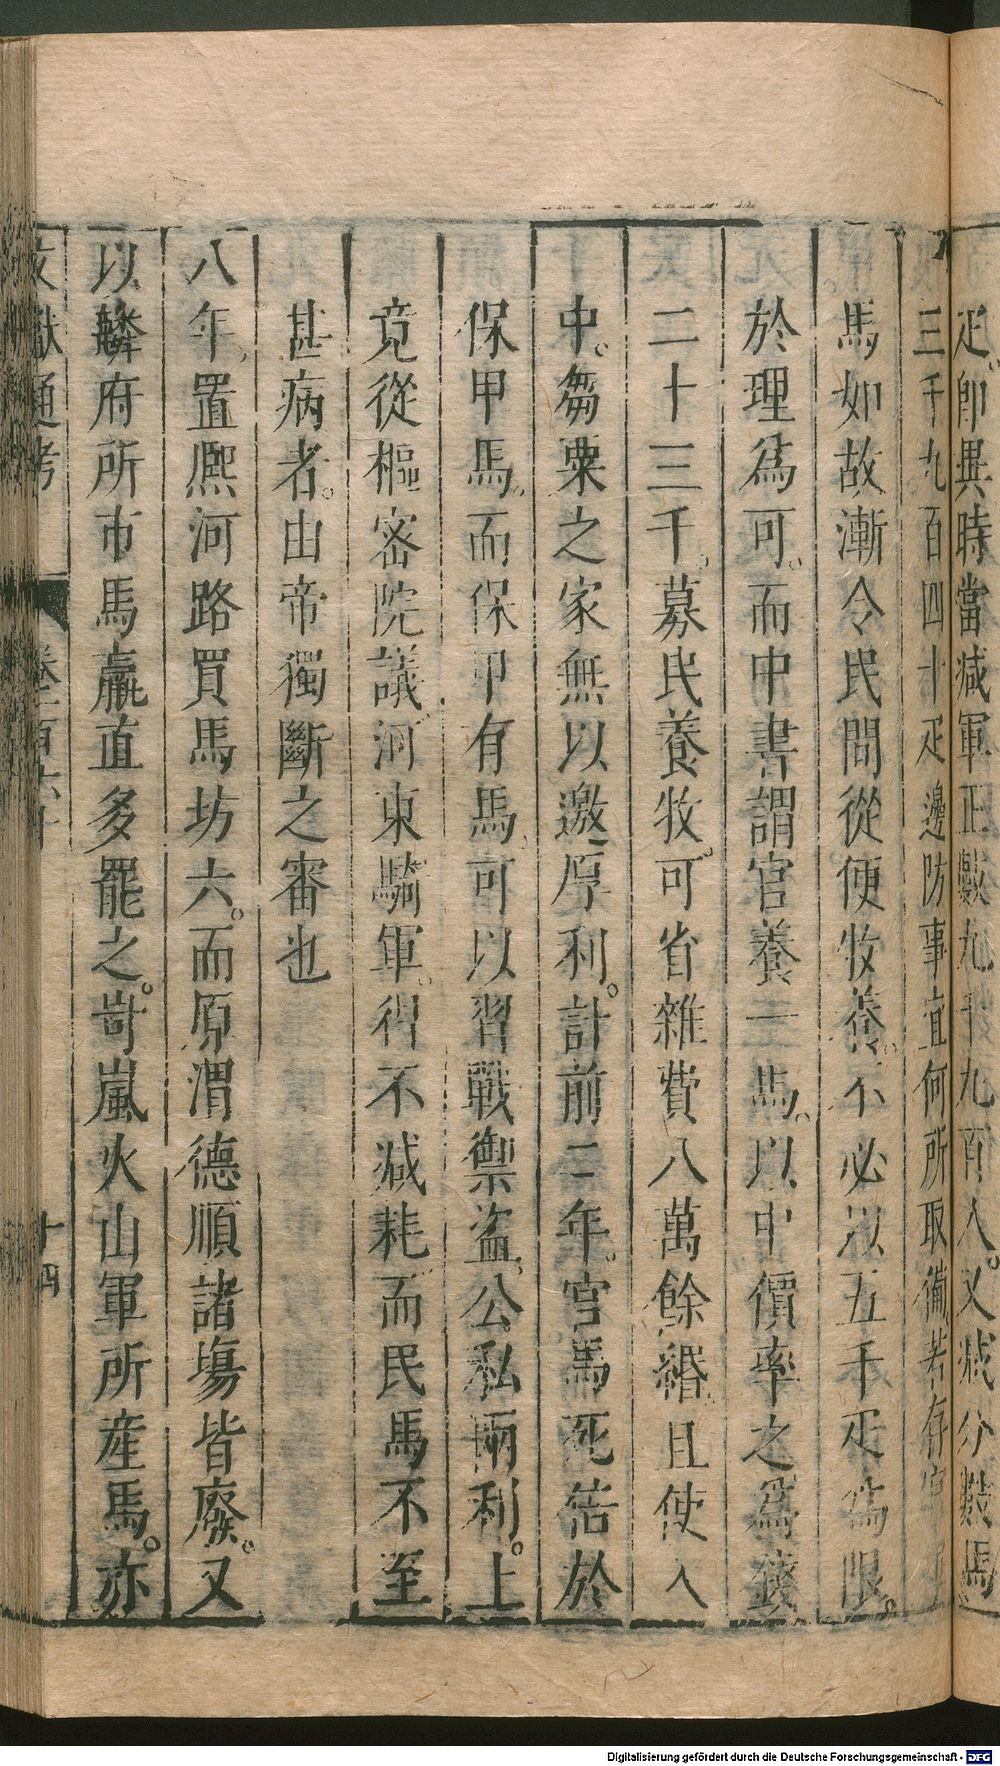 疋。即異時當减軍正數九千九百人。又减分數馬
三千九百四十疋邊防事宜何所取備若存官
馬如故漸令民間從便牧養。不必以五千疋爲限。
於理爲可。而中書謂官養一馬。以中價率之爲錢
二十三千。募民養牧。可省雜費八萬餘緡。且使入
中。芻粟之家無以邀厚利。計前二年。官馬死倍於
保甲馬。而保甲有馬。可以習戰禦盗。公私兩利。上
竟從樞密院議河東騎軍。得不减耗而民馬不至
甚病者。由帝獨斷之審也
八年。置熈河路買馬坊六。而原渭德順諸塲皆廢。又
以麟府所市馬羸直多罷之。岢嵐火山軍所産馬。亦
文獻通考
卷一百六十
十四
Digitalisierung gefördert durch die Deutsche Forschungsgemeinschaft - DFG